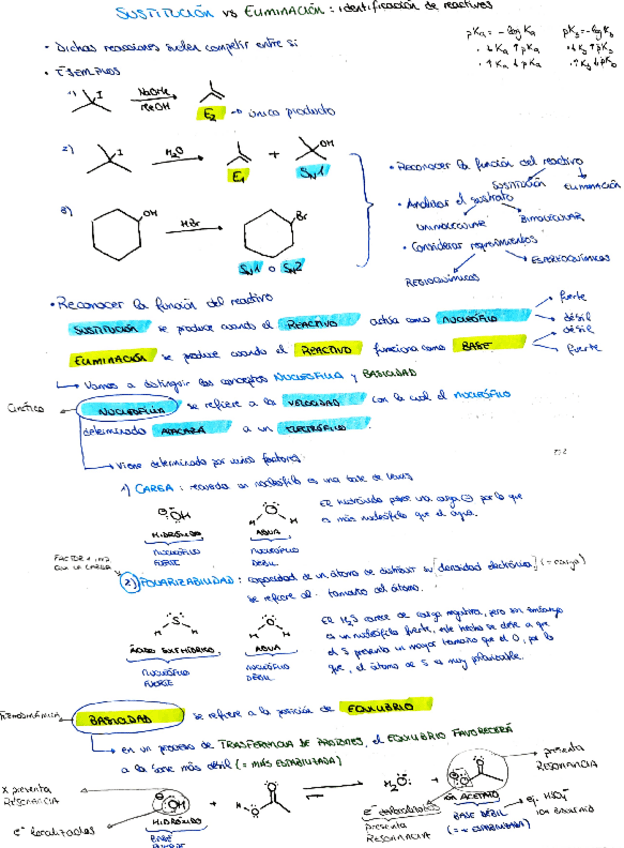 SUSTITUCIÓN vs ELIMINACIÓN: identificación de reactivos
• Dichas reacciones suelen competir entre sí
pKa = - log Ka
• ↓ Ka ↑ pKa
• ↑ Ka ↓ pKa
pKb = - log Kb
• ↓ Kb ↑ pKb
• ↑ Kb ↓ pKb
• EJEMPLOS
1)
I
NaOMe
MeOH
E2 → único producto
2)
I
H2O
+
OH
E1
SN1
3)
OH
HBr
Br
SN1 o SN2
• Reconocer la función del reactivo
SUSTITUCIÓN
ELIMINACIÓN
• Analizar el sustrato
UNIMOLECULAR
BIMOLECULAR
• Considerar requerimientos
ESTEREOQUÍMICOS
REGIOQUÍMICOS
• Reconocer la función del reactivo
SUSTITUCIÓN se produce cuando el REACTIVO actúa como NUCLEÓFILO
fuerte
débil
ELIMINACIÓN se produce cuando el REACTIVO funciona como BASE
débil
fuerte
Vamos a distinguir los conceptos NUCLEOFILIA y BASICIDAD
Cinético
NUCLEOFILIA se refiere a la VELOCIDAD con la cual el NUCLEÓFILO
determinado ATACARÁ a un ELECTRÓFILO
Viene determinado por varios factores:
1) CARGA: recuerda un nucleófilo es una base de Lewis
OH
HIDRÓXIDO
NUCLEÓFILO
FUERTE
H O H
AGUA
NUCLEÓFILO
DÉBIL
El hidróxido posee una carga ⊖ por lo que
es más nucleófilo que el agua.
FACTOR + IMP
QUE LA CARGA
2) POLARIZABILIDAD: capacidad de un átomo de distribuir su [densidad electrónica] (= carga)
se refiere al tamaño del átomo.
H S H
ÁCIDO SULFHÍDRICO
NUCLEÓFILO
FUERTE
H O H
AGUA
NUCLEÓFILO
DÉBIL
El H2S carece de carga negativa, pero sin embargo
es un nucleófilo fuerte, este hecho se debe a que
el S presenta un mayor tamaño que el O, por lo
que, el átomo de S es muy polarizable.
TERMODINÁMICA
BASICIDAD se refiere a la posición de EQUILIBRIO
en un proceso de TRANSFERENCIA DE PROTONES, el EQUILIBRIO FAVORECERÁ
a la base más débil (= MÁS ESTABILIZADA)
X presenta
RESONANCIA
e⁻ localizados
OH
HIDRÓXIDO
BASE
FUERTE
+
H O
O
H2O:
+
O
O
presenta
RESONANCIA
e⁻ deslocalizados
presenta
RESONANCIA
ion ACETATO
BASE DÉBIL
(= + ESTABILIZADA)
ej. HSO4⁻
ion BISULFATO